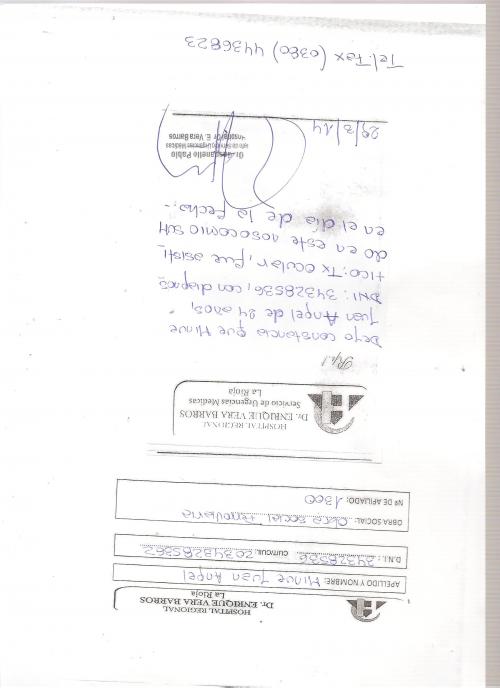 HOSPITAL REGIONAL
Dr. ENRIQUE VERA BARROS
La Rioja
APELLIDO Y NOMBRE: Minue Juan Angel
D.N.I.: 34328536 CUIT/CUIL: 20343285362
OBRA SOCIAL: Obra social Ferroviaria
Nº DE AFILIADO: 1300
HOSPITAL REGIONAL
Dr. ENRIQUE VERA BARROS
Servicio de Urgencias Médicas
La Rioja
Dejo constancia que Minue
Juan Angel de 24 años,
DNI: 34328536, con diagnós
tico: Tx ocular, fue asisti_
do en este nosocomio SUM
en el día de la fecha.-
Dr. Pablo
Jefe de Servicio Urgencias Médicas
Hospital Dr. E. Vera Barros
29/3/14
Tel. Fax (0380) 4436823